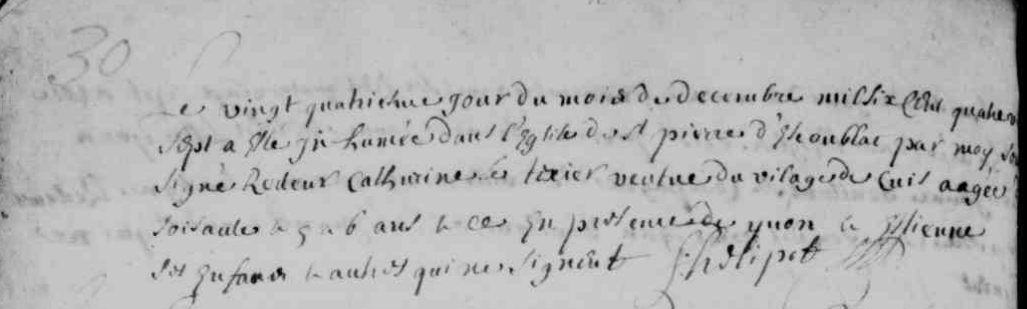 30
Le vingt quatriesme jour du mois de decembre mil six cent quatre v
sept a esté jnhumée dans l'Eglise de st pierre d'Escoublac par moy sou
signé Redeur Catherine le texier veufue du vilage de Cuis aagée
soisante & 5 a 6 ans & ce En presence de yuon & Estienne
ses Enfans & autres qui ne signent